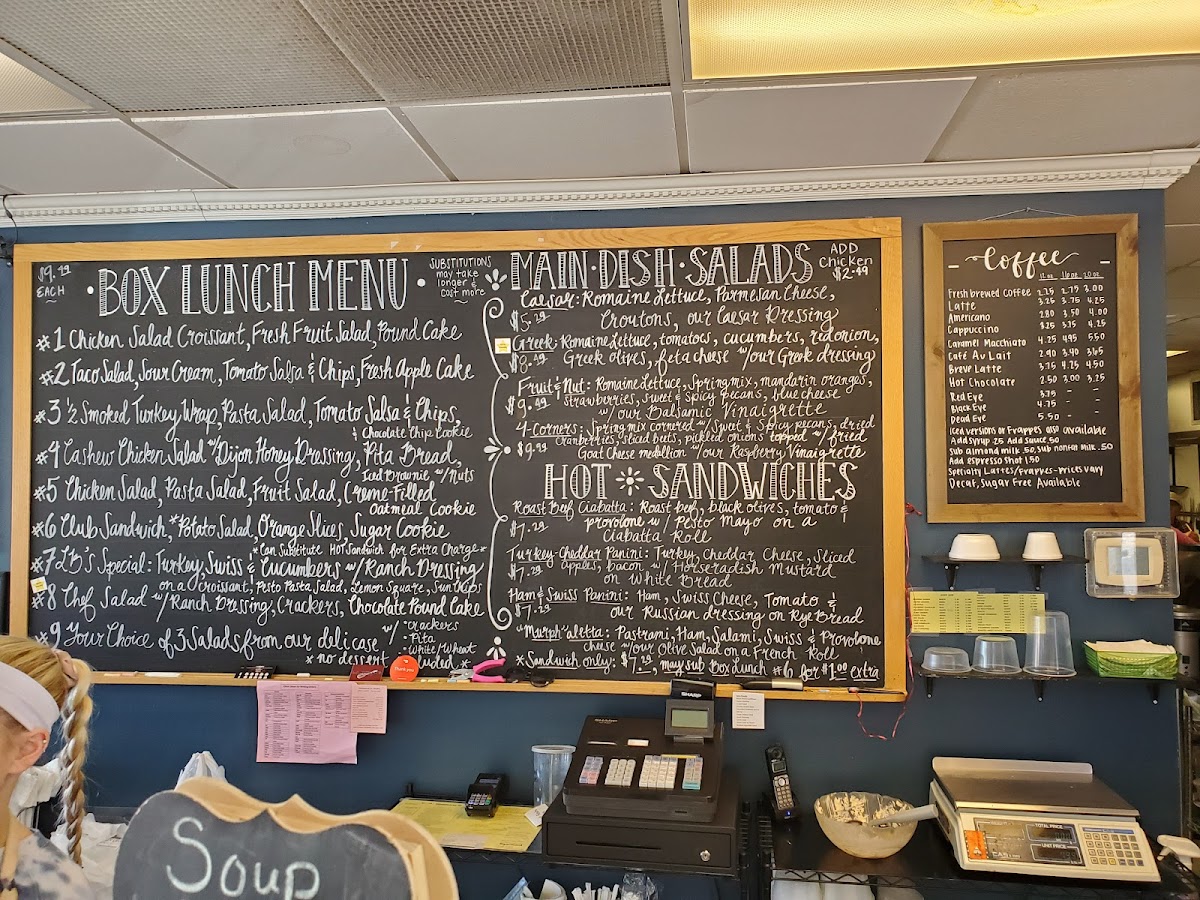 $9.29
EACH
·BOX LUNCH MENU·
SUBSTITUTIONS
may take
longer &
cost more
#1 Chicken Salad Croissant, Fresh Fruit Salad, Pound Cake
#2 Taco Salad, Sour Cream, Tomato Salsa & Chips, Fresh Apple Cake
#3 ½ Smoked Turkey Wrap, Pasta Salad, Tomato Salsa & Chips,
& Chocolate Chip Cookie
#4 Cashew Chicken Salad w/Dijon Honey Dressing, Pita Bread,
Iced Brownie w/Nuts
#5 Chicken Salad, Pasta Salad, Fruit Salad, Creme-Filled
Oatmeal Cookie
#6 Club Sandwich *Potato Salad, Orange Slices, Sugar Cookie
*Can Substitute Hot Sandwich for Extra Charge*
#7 LB's Special: Turkey, Swiss & Cucumbers w/Ranch Dressing
on a Croissant, Pesto Pasta Salad, Lemon Square, Sun Chips
#8 Chef Salad w/Ranch Dressing, Crackers, Chocolate Pound Cake
#9 Your Choice of 3 Salads from our deli case w/
· crackers
· Pita
· White/Wheat
* no dessert included *
MAIN·DISH·SALADS
ADD
Chicken
$2.49
Caesar: Romaine Lettuce, Parmesan Cheese,
$5.29 Croutons, our Caesar Dressing
Greek: Romaine Lettuce, tomatoes, cucumbers, red onion,
$8.49 Greek olives, feta cheese w/our Greek dressing
Fruit & Nut: Romaine Lettuce, Spring mix, mandarin oranges,
$9.49 strawberries, sweet & spicy pecans, blue cheese
w/our Balsamic Vinaigrette
4-Corners: Spring mix cornered w/Sweet & Spicy pecans, dried
cranberries, sliced beets, pickled onions topped w/fried
$9.29 Goat Cheese medallion w/our Raspberry Vinaigrette
HOT SANDWICHES
Roast Beef Ciabatta: Roast beef, black olives, tomato &
$7.29 provolone w/ Pesto Mayo on a
Ciabatta Roll
Turkey-Cheddar Panini: Turkey, Cheddar Cheese, Sliced
$7.29 apples, bacon w/ Horseradish Mustard
on White Bread
Ham & Swiss Panini: Ham, Swiss Cheese, Tomato &
$7.29 our Russian dressing on Rye Bread
"Murph"aletta: Pastrami, Ham, Salami, Swiss & Provolone
cheese w/our Olive Salad on a French Roll
*Sandwich only: $7.29, may sub Box Lunch #6 for $1.00 extra
Coffee
12 oz. 16 oz. 20 oz.
Fresh brewed Coffee 2.25 2.79 3.00
Latte 3.25 3.75 4.25
Americano 2.80 3.50 4.00
Cappuccino 3.25 3.75 4.25
Caramel Macchiato 4.25 4.95 5.50
Café Au Lait 2.90 3.40 3.65
Brew Latte 3.75 4.25 4.50
Hot Chocolate 2.50 3.00 3.25
Red Eye 3.75 - -
Black Eye 4.75 - -
Dead Eye 5.50 - -
Iced versions or Frappes also available
Add syrup .75 Add Sauce .50
Sub almond milk .50, Sub nonfat milk .50
Add espresso shot 1.50
Specialty Lattes/Frappes-prices vary
Decaf, Sugar Free Available
thank you
SHARP
TOTAL PRICE
UNIT PRICE
Soup